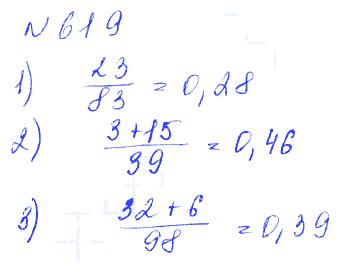 №619
1) 23/83 = 0,28
2) 3+15/39 = 0,46
3) 32+6/98 = 0,39